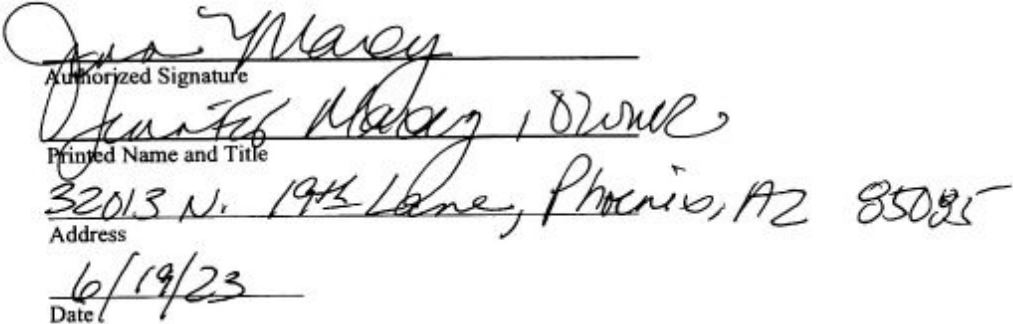 Authorized Signature
Jennifer , Owner
Printed Name and Title
32013 N. 19th Lane, Phoenix, AZ 85085
Address
6/19/23
Date